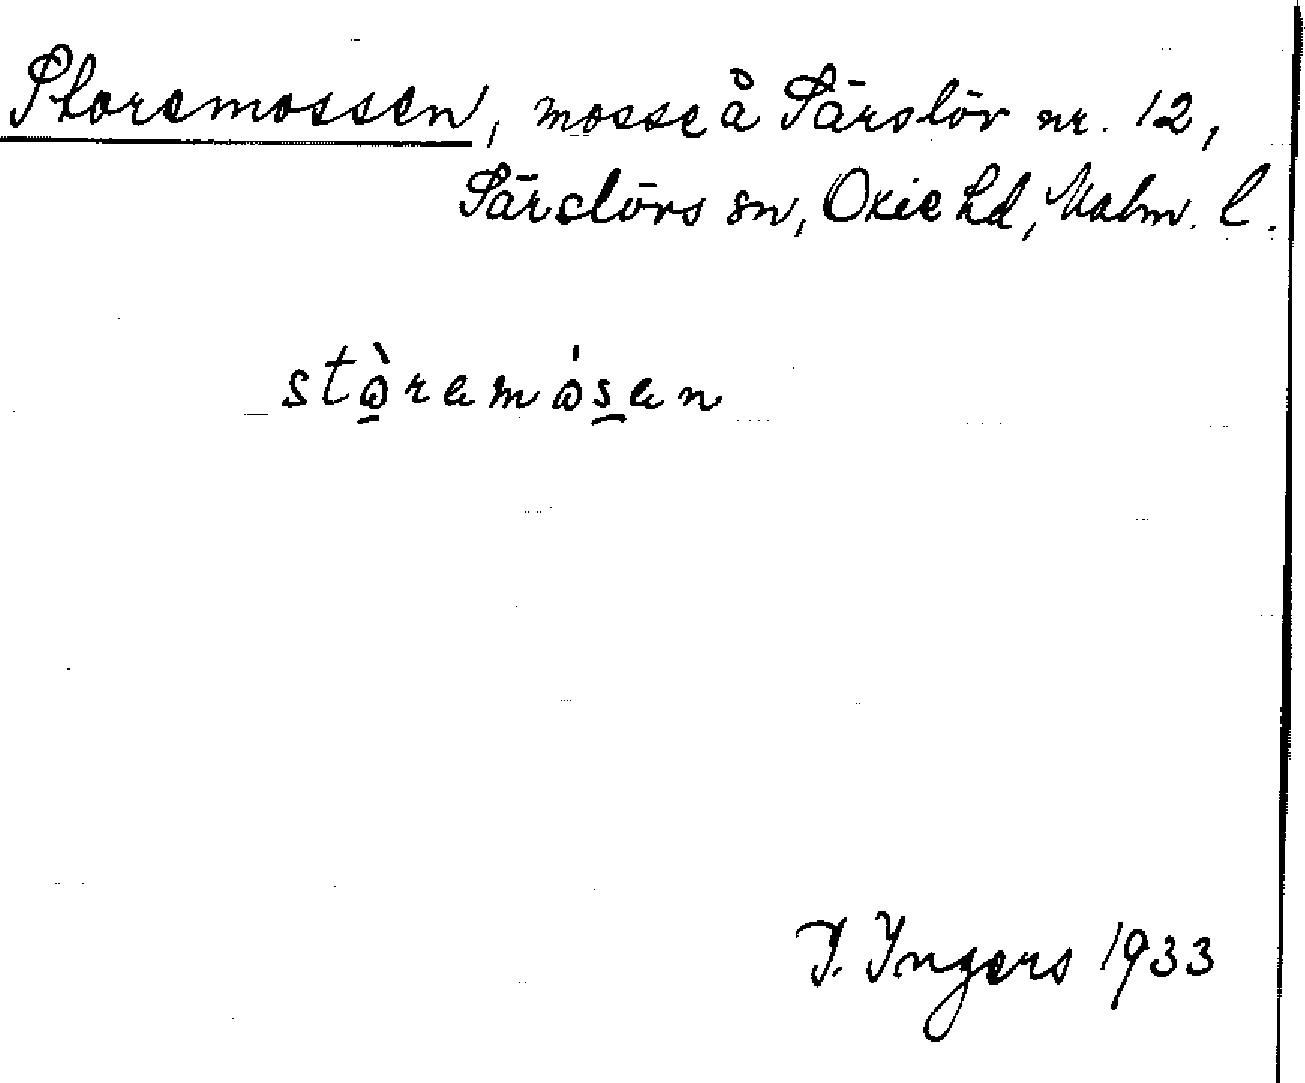 Storemossen, mosse å Särslöv nr. 12,
Särslövs sn, Oxie hd, Malm. l.
stòremósen
I. Ingers 1933